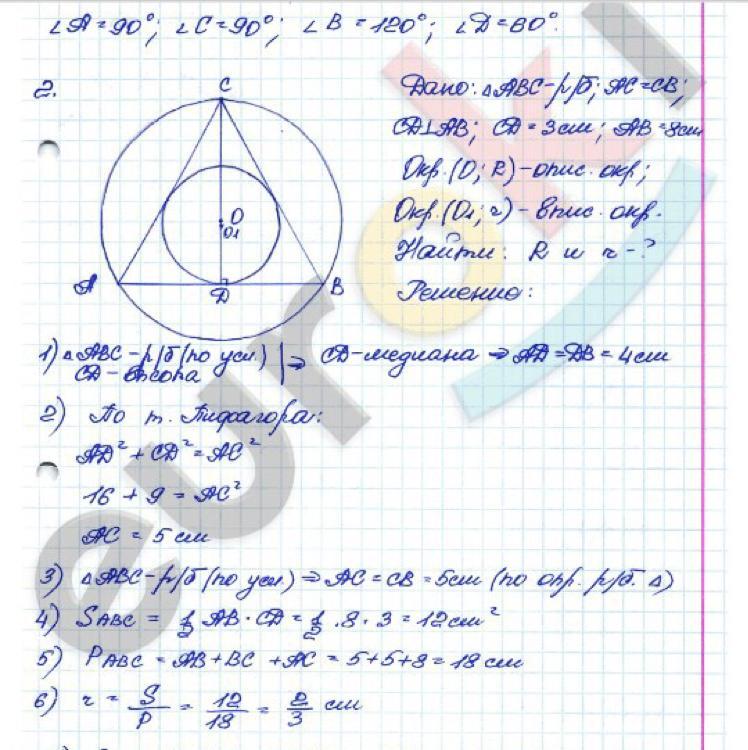 ∠A = 90°; ∠C = 90°; ∠B = 120°; ∠D = 60°.
2.
C
O
O₁
A
D
B
Дано: △ABC - р/б; AC = CB;
CD⊥AB; CD = 3 см; AB = 8 см
Окр. (O; R) - опис. окр;
Окр. (O₁; r) - впис. окр.
Найти: R и r - ?
Решение:
1) △ABC - р/б (по усл.) | ⇒ CD - медиана ⇒ AD = DB = 4 см
CD - высота
2) По т. Пифагора:
AD² + CD² = AC²
16 + 9 = AC²
AC = 5 см
3) △ABC - р/б (по усл.) ⇒ AC = CB = 5 см (по опр. р/б. △)
4) S ABC = 1/2 AB · CD = 1/2 · 8 · 3 = 12 см²
5) P ABC = AB + BC + AC = 5 + 5 + 8 = 18 см
6) r = S/P = 12/18 = 2/3 см
euroki